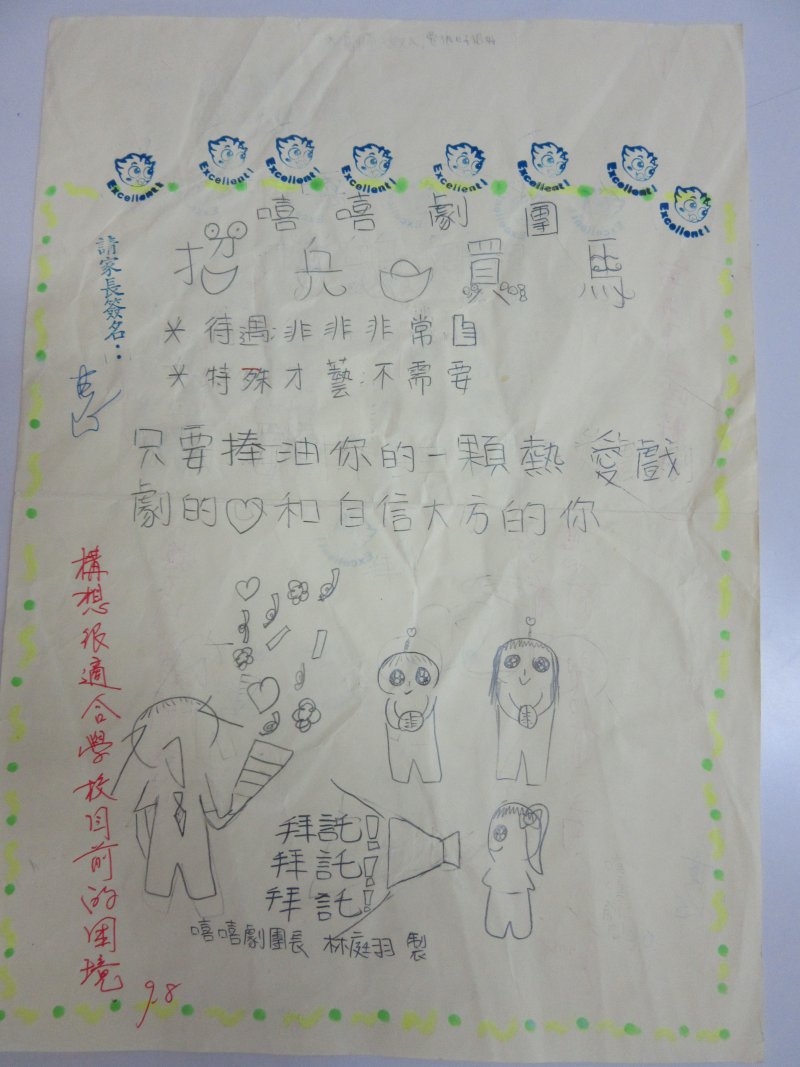 Excellent!
Excellent!
Excellent!
Excellent!
Excellent!
Excellent!
Excellent!
Excellent!
嘻嘻劇團
招兵買馬
*待遇:非非非常
*特殊才藝:不需要
只要捧油你的一顆熱愛戲
劇的♡和自信大方的你
請家長簽名：
構想很適合學校目前的困境
98
拜託!
拜託!
拜託!
嘻嘻劇團長 林庭羽 製